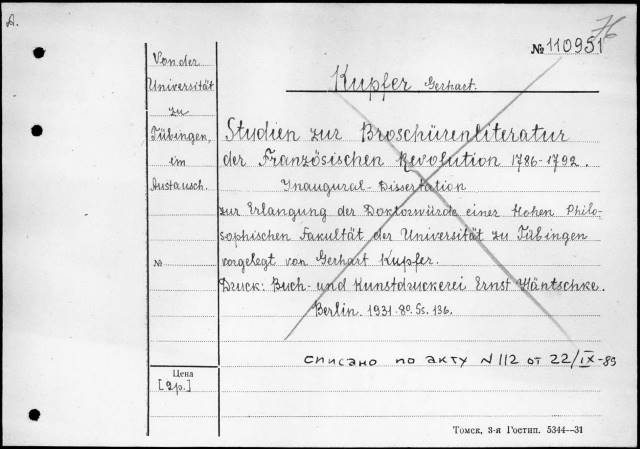 A.
76
№ 110951
Von der
Universität
zu
Tübingen,
im
Austausch.
№
Цена
[2р.]
Kupfer Gerhart.
Studien zur Broschürenliteratur
der Französischen Revolution 1786-1792.
Inaugural-Dissertation
zur Erlangung der Doktorwürde einer Hohen Philo-
sophischen Fakultät der Universität zu Tübingen
vorgelegt von Gerhart Kupfer.
Druck: Buch- und Kunstdruckerei Ernst Häntschke.
Berlin. 1931. 8o. Ss. 136.
списано по акту N 112 от 22/IX-89
Томск, 3-я Гостип. 5344—31